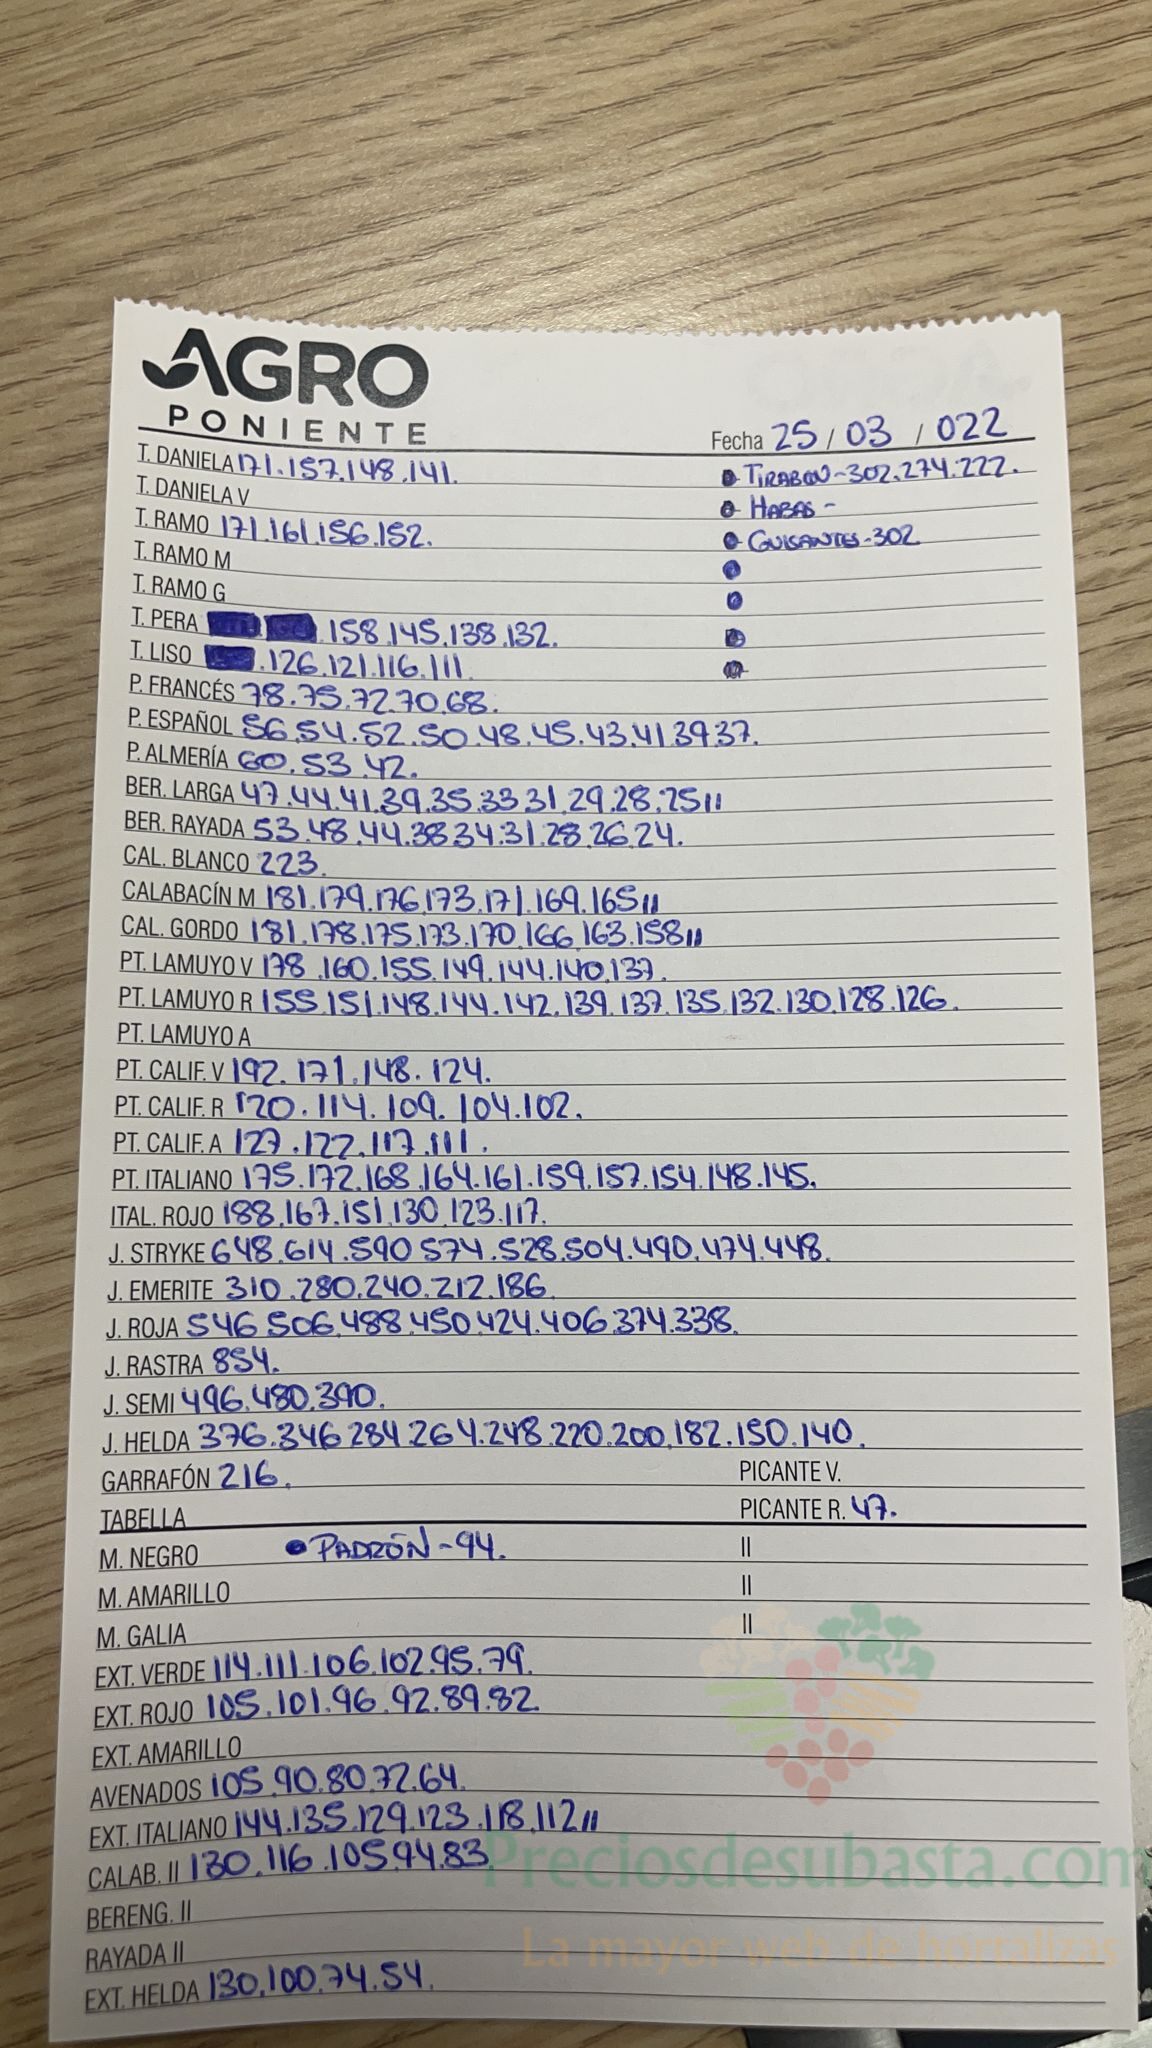 AGRO
PONIENTE
Fecha 25 / 03 / 022
T. DANIELA 171.157.148.141.
TIRABON-302.274.222.
T. DANIELA V
HABAS -
T. RAMO 171.161.156.152.
GUISANTES-302
T. RAMO M
T. RAMO G
T. PERA 158.145.138.132.
T. LISO .126.121.116.111
P. FRANCÉS 78.75.72.70.68.
P. ESPAÑOL 56.54.52.50.48.45.43.41.39.37.
P. ALMERÍA 60.53.42.
BER. LARGA 47.44.41.39.35.33.31.29.28.25 11
BER. RAYADA 53.48.44.38.34.31.28.26.24.
CAL. BLANCO 223.
CALABACÍN M 181.179.176.173.171.169.165 11
CAL. GORDO 181.178.175.173.170.166.163.158 11
PT. LAMUYO V 178.160.155.149.144.140.137.
PT. LAMUYO R 155.151.148.144.142.139.137.135.132.130.128.126.
PT. LAMUYO A
PT. CALIF. V 192.171.148.124.
PT. CALIF. R 120.114.109.104.102.
PT. CALIF. A 127.122.117.111.
PT. ITALIANO 175.172.168.164.161.159.157.154.148.145.
ITAL. ROJO 188.167.151.130.123.117.
J. STRYKE 648.614.590.574.528.504.490.474.448.
J. EMERITE 310.280.240.212.186.
J. ROJA 546.506.488.450.424.406.374.338.
J. RASTRA 854.
J. SEMI 496.480.390.
J. HELDA 376.346.284.264.248.220.200.182.150.140.
GARRAFÓN 216.
PICANTE V.
TABELLA
PICANTE R. 47.
M. NEGRO
PADRÓN-94.
II
M. AMARILLO
II
M. GALIA
II
EXT. VERDE 114.111.106.102.95.79.
EXT. ROJO 105.101.96.92.89.82.
EXT. AMARILLO
AVENADOS 105.90.80.72.64.
EXT. ITALIANO 144.135.129.123.118.112 11
CALAB. II 130.116.105.94.83
Preciosdesubasta.com
BERENG. II
La mayor web de hortalizas
RAYADA II
EXT. HELDA 130.100.74.54.